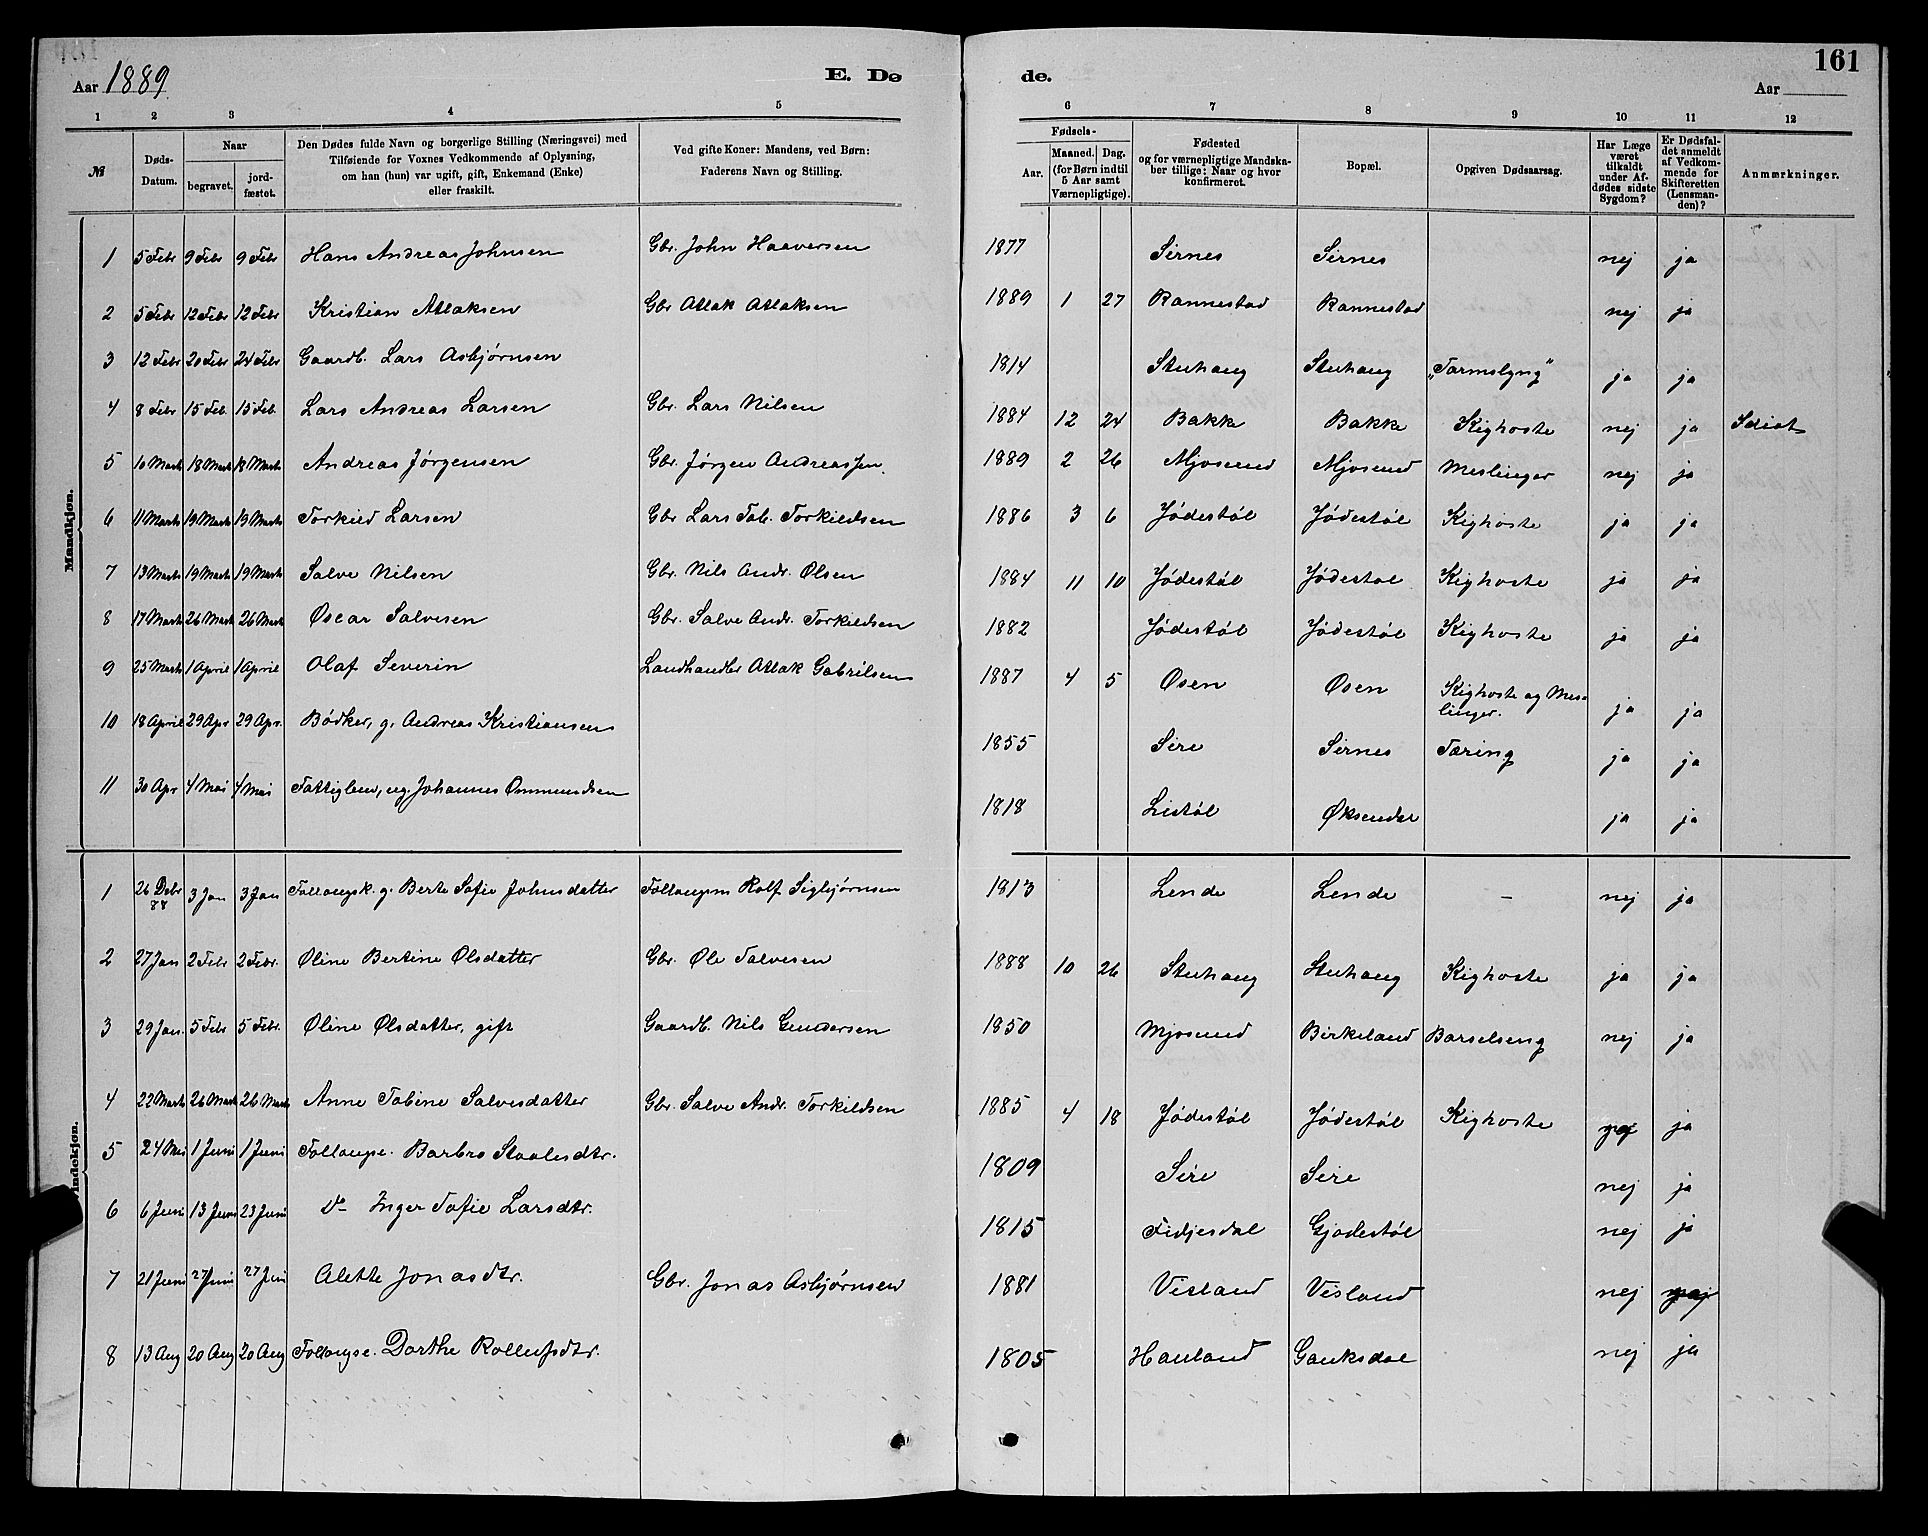 Aar 1889.
E. Dø
de.
161
Aar
1 2 3 4 5 6 7 8 9 10 11 12
№
Døds-Datum.
Naar
begravet.
jordfæstet.
Den Dødes fulde Navn og borgerlige Stilling (Næringsvei) med
Tilføiende for Voxnes Vedkommende af Oplysning,
om han (hun) var ugift, gift, Enkemand (Enke)
eller fraskilt.
Ved gifte Koner: Mandens, ved Børn:
Faderens Navn og Stilling.
Fødsels-
Aar.
Maaned. Dag.
(for Børn indtil
5 Aar samt
Værnepligtige).
Fødested
og for værnepligtige Mandska-
ber tillige: Naar og hvor
konfirmeret.
Bopæl.
Opgiven Dødsaarsag.
Har Læge
været
tilkaldt
under Af-
dødes sidste
Sygdom?
Er Dødsfal-
det anmeldt
af Vedkom-
mende for
Skifteretten
(Lensman-
den)?
Anmærkninger.
Mandkjøn.
1 5 Febr 9 Febr 9 Febr Hans Andreas Johnsen Gbr. John Haaversen 1877 Sirnes Sirnes nej ja
2 5 Febr 12 Febr 12 Febr Kristian Atlaksen Gbr Atlak Atlaksen 1889 1 27 Rannestad Rannestad nej ja
3 12 Febr 20 Febr 24 Febr Gaardb. Lars Asbjørnsen 1814 Stuhaug Stuhaug „Tarmslyng" ja ja
4 8 Febr 15 Feb. 15 Feb. Lars Andreas Larsen Gbr. Lars Nilsen 1884 12 24 Bakke Bakke Kighoste nej ja Idiot
5 10 Marts 18 Marts 18 Marts Andreas Jørgensen Gbr. Jørgen Andreassen. 1889 2 26 Mjosund Mjosund Meslinger nej ja
6 11 Marts 19 Marts 19 Marts Torkild Larsen Gbr Lars Tob. Torkildsen 1886 3 6 Jödestöl Jödestöl Kighoste ja ja
7 13 Marts 19 Marts 19 Marts Salve Nilsen Gbr. Nils Andr. Olsen 1884 11 10 Jödestöl Jödestöl Kighoste ja ja
8 17 Marts 26 Marts 26 Marts Oscar Salvesen Gbr. Salve Andr. Torkildsen 1882 Jödestöl Jödestöl Kighoste ja ja
9 25 Marts 1 April 1 April Olaf Severin Landhandler Atlak Gabrilsen 1887 4 5 Osen Osen Kighoste og Mes-
linger. ja ja
10 18 April 29 Apr 29 Apr. Bödker, g. Andreas Kristiansen 1855 Sire Sirnes Tæring ja ja
11 30 Apr 4 Mai 4 Mai Fattiglem, ug. Johannes Ommundsen 1818 Listöl Øksendal ja ja
Kvindekjøn.
1 26 Debr 88 3 Jan 3 Jan Follaugsk. g. Berte Sofie Johnsdatter Follaugsm Rolf Sigbjørnsen 1813 Lende Lende – nej ja
2 27 Jan 2 Febr 2 Febr. Oline Bertine Olsdatter Gbr. Ole Salvesen 1888 10 26 Stuhaug Stuhaug Kighoste ja ja
3 29 Jan. 5 Febr 5 Febr. Oline Olsdatter, gift Gaardb. Nils Gundersen 1850 Mjosund Birkeland Barselseng nej ja
4 22 Marts 26 Marts 26 Marts Anne Tobine Salvesdatter Gbr. Salve Andr. Torkildsen 1885 4 18 Jödestöl Jödestöl Kighoste ja
5 24 Mai 1 Juni 1 Juni Follaugse. Barbro Staalesdtr. 1809 Sire Sire nej ja
6 6 Juni 13 Juni 23 Juni Do Inger Sofie Larsdtr. 1815 Fidjesdal Gjödestöl nej ja
7 21 Juni 27 Juni 27 Juni Alette Jonasdtr. Gbr. Jonas Asbjørnsen 1881 Visland Visland nej
8 13 Aug 20 Aug 20 Aug Follaugse. Dorthe Rollufsdtr. 1805 Hauland Gauksdal nej ja